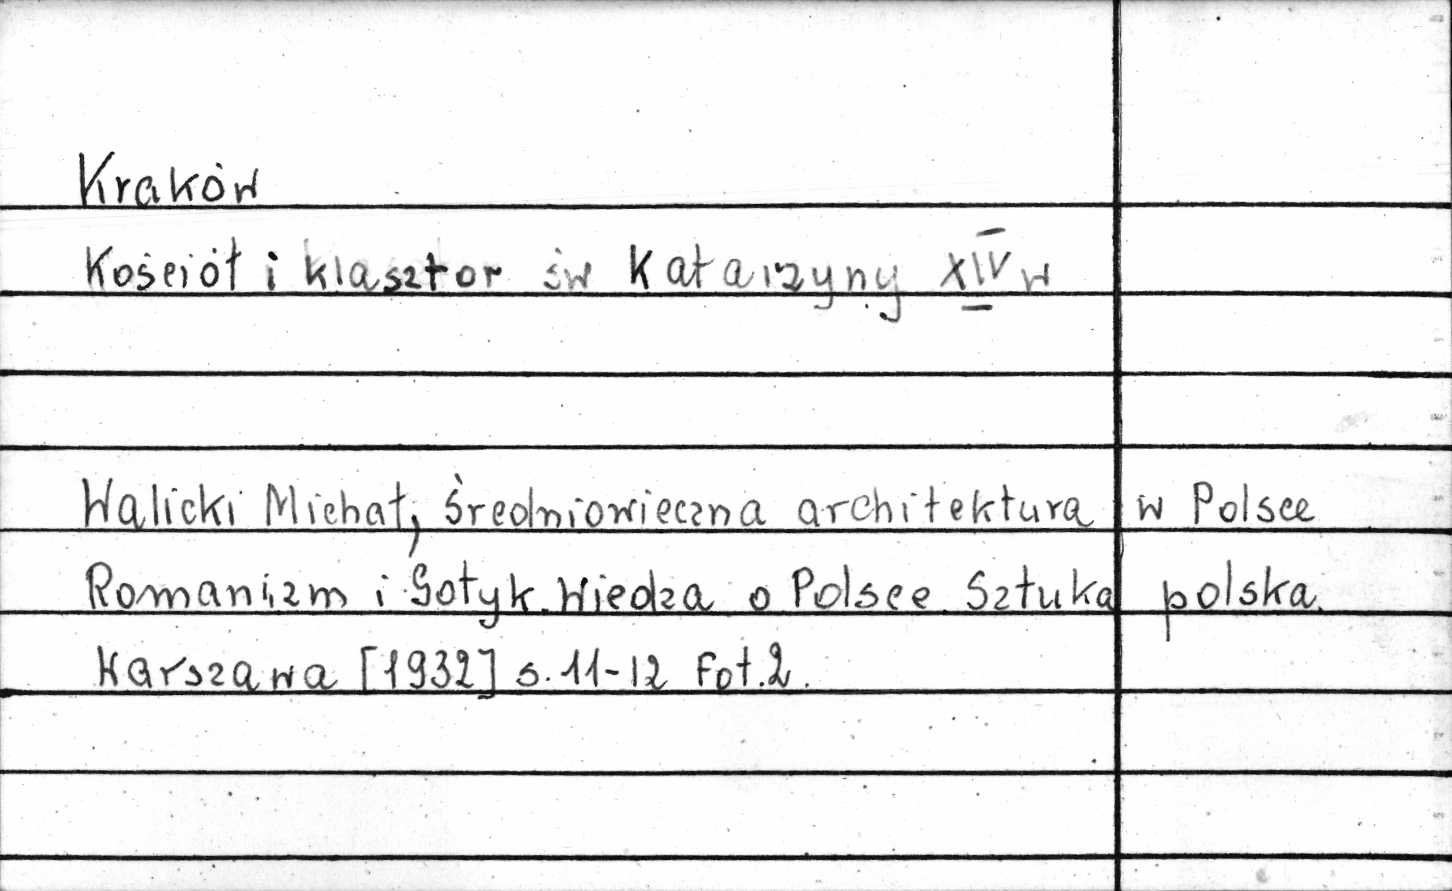 Kraków
Kościół i klasztor św Katarzyny XIV w
Walicki Michał, Średniowieczna architektura w Polsce
Romanizm i Gotyk. Wiedza o Polsce. Sztuka polska.
Warszawa [1932] s. 11-12 Fot. 2.